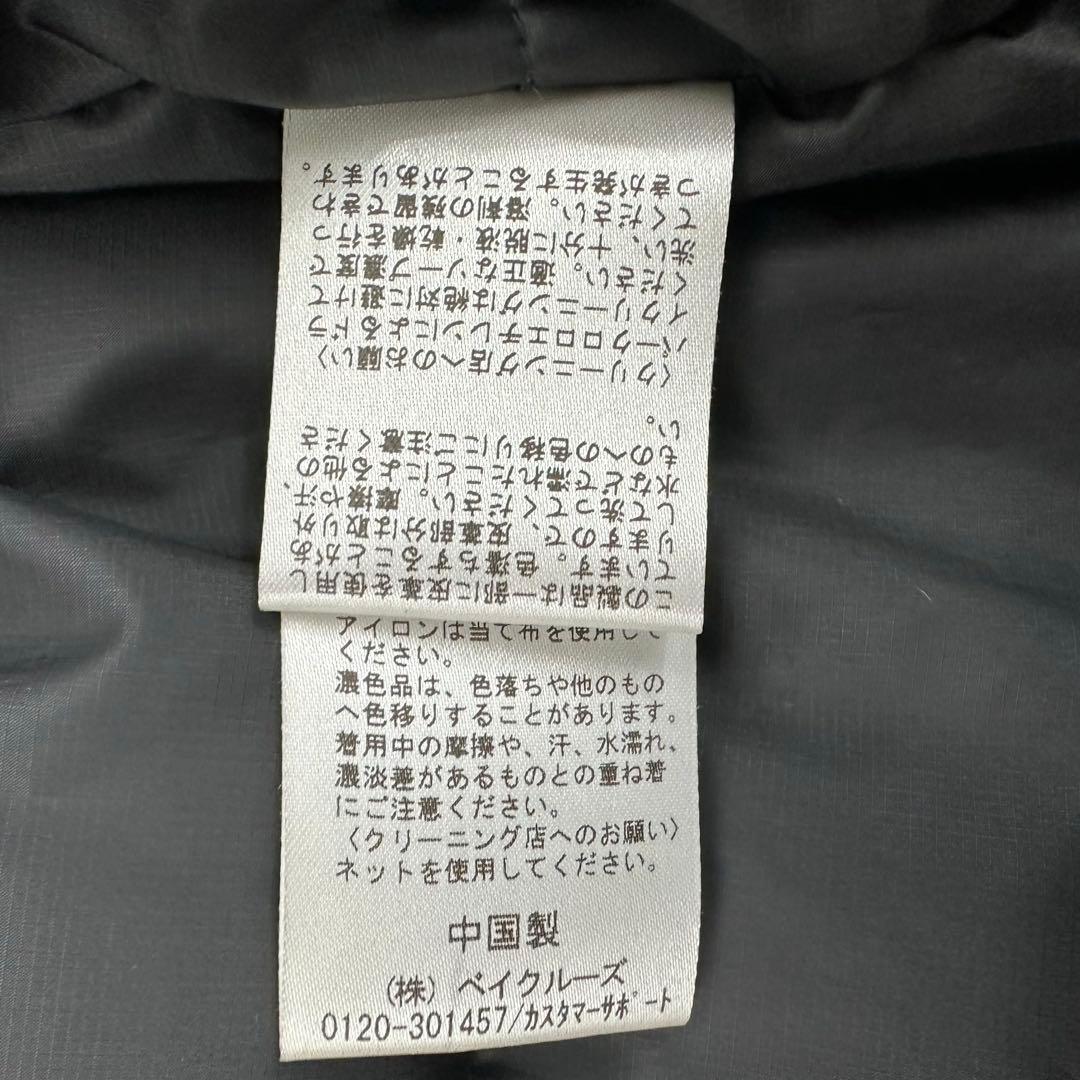 この製品は一部に皮革を使用し
ています。色落ちすることがあ
りますので、皮革部分は取り外
して洗ってください。摩擦や汗、
水などで濡れたことによる他の
ものへの色移りにご注意くださ
い。
〈クリーニング店へのお願い〉
パークロロエチレンによるドラ
イクリーニングは絶対に避けて
ください。適正なソープ濃度で
洗い、十分に脱液・乾燥を行っ
てください。溶剤の残留できわ
つきが発生することがあります。
アイロンは当て布を使用して
ください。
濃色品は、色落ちや他のもの
へ色移りすることがあります。
着用中の摩擦や、汗、水濡れ、
濃淡差があるものとの重ね着
にご注意ください。
〈クリーニング店へのお願い〉
ネットを使用してください。
中国製
(株) ベイクルーズ
0120-301457/ｶｽﾀﾏｰｻﾎﾟｰﾄ